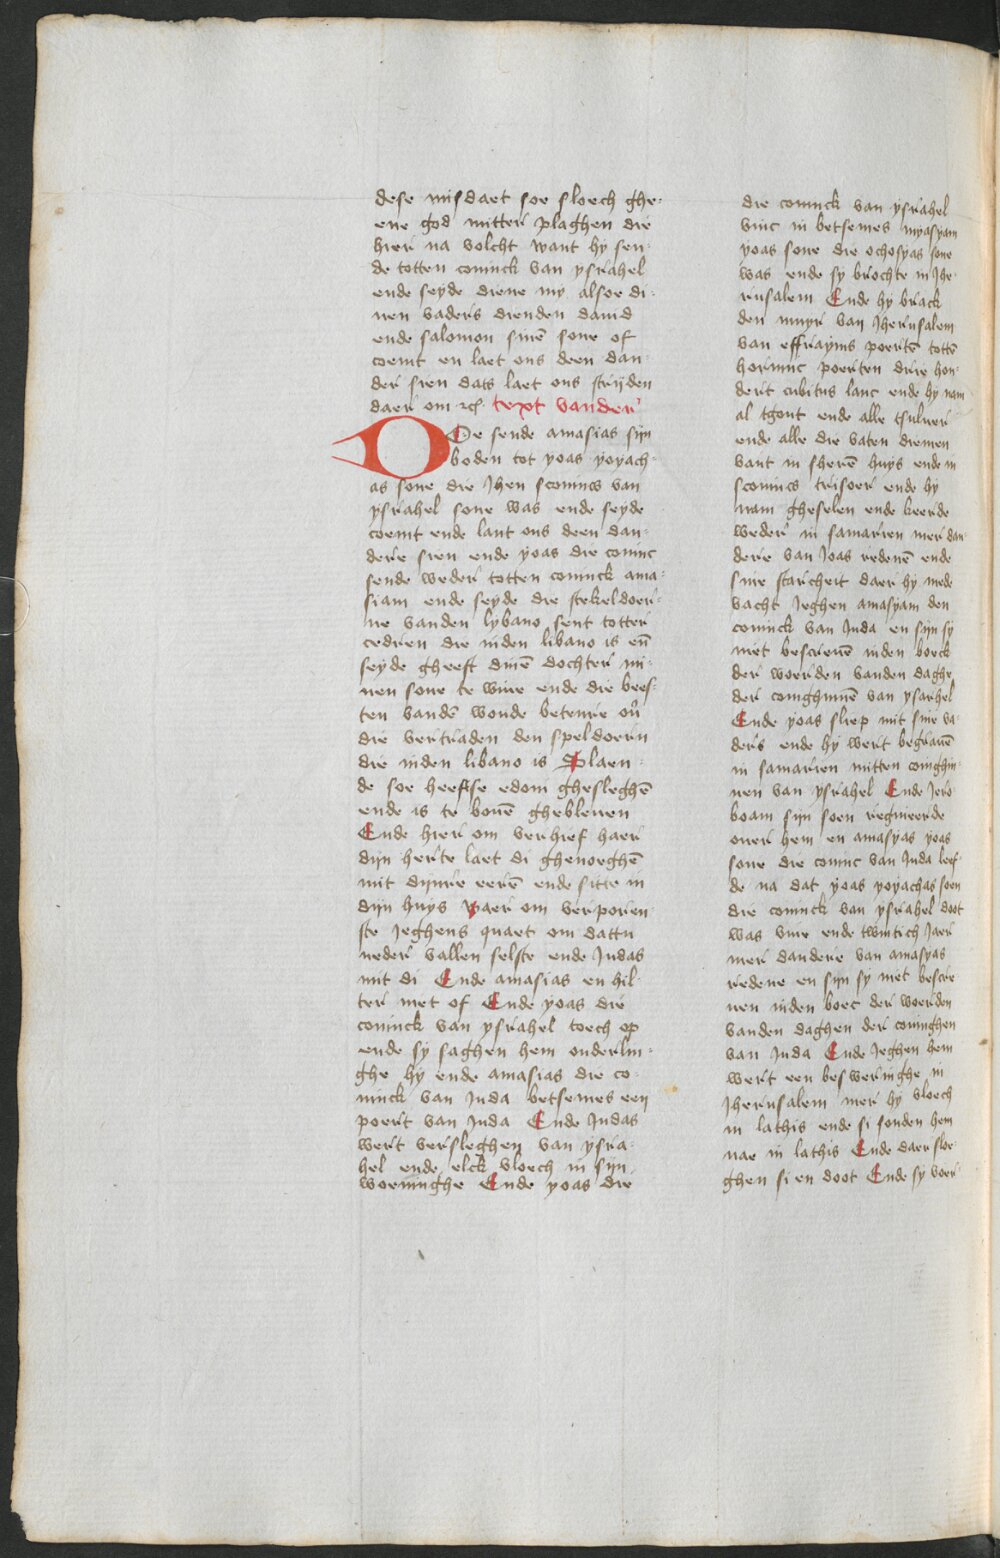 dese misdaet soe sloech ghe-
ene god mitter plaghen die
hier na volcht want hy sen-
de totten coninck van ysrahel
ende seyde diene my alsoe di-
nen vaders dienden dauid
ende salomon sinē sone of
coemt en laet ons deen dan-
der sien dats laet ons strijden
daer om &c. text vander
DOe sende amasias sijn
boden tot yoas yoyach-
as sone die Jhen sconincs van
ysrahel sone was ende seyde
coemt ende laet ons deen dan-
dere sien ende yoas die coninc
sende weder totten coninck ama-
siam ende seyde die stekeldoer-
ne vanden lybano sent totter
cedren die inden libano is eñ
seyde gheeft dinē dochter mi-
nen sone te wiue ende die bees-
ten vandē woude
die vertraden den speldoern
die inden libano is Slaen-
de soe heeftse edom ghesleghē
ende is te bouē ghebleuen
Ende hier om verhief haer
dijn herte laet di ghenoeghē
mit dijnre eerē ende sitte in
dijn huys waer om verporen-
ste jeghens quaet om dattu
neder vallen selste ende Judas
mit di Ende amasias en hil-
ter niet of Ende yoas die
coninck van ysrahel toech op
ende sy saghen hem onderlin-
ghe hy ende amasias die co-
ninck van Juda betsemes een
poert van Juda Ende Judas
wert versleghen van ysra-
hel ende elck vloech in sijn
woeninghe Ende yoas die
die coninck van ysrahel
vinc in betsemes amasyam
yoas sone die ochosyas sone
was ende sy brochte in Jhe-
rusalem Ende hy brack
den muyr van Jherusalem
van effrayms poertē tottē
horninc poerten drie hon-
dert cubitus lanc ende hy nam
al tgout ende alle tsiluer
ende alle die vaten diemen
vant in sherē huys ende in
sconincs trisoer ende hy
nam gheselen ende keerde
weder in samarien mer dan-
dere van Joas redenē ende
sine starcheit daer hy mede
vacht jeghen amasyam den
coninck van Juda en sijn sy
niet bescreuē inden boeck
der woerden vanden daghe
der coninghinnē van ysrahel
Ende yoas sliep mit sine va-
ders ende hy wert begrauē
in samarien mitten coninghin-
nen van ysrahel Ende Jero
boam sijn soen regneerde
ouer hem en amasyas yoas
sone die coninc van Juda leef-
de na dat yoas yoyachas soen
die coninck van ysrahel doot
was viue ende twintich Jaer
mer dandere van amasyas
redene en sijn sy niet bescre
uen inden boec der woerden
vanden daghen der coninghen
van Juda Ende Jeghen hem
wert een besweringhe in
Jherusalem mer hy vloech
in lathis ende si sonden hem
nae in lathis Ende daer sloe
ghen si en doot Ende sy voer